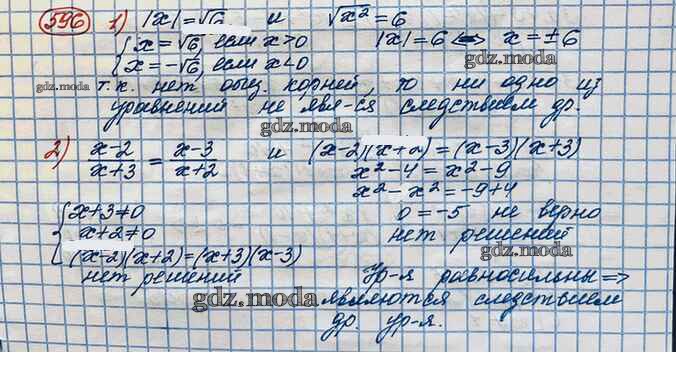 596 1) |x| = √6 и √x² = 6
{ x = √6, если x > 0 |x| = 6 <=> x = ±6
{ x = -√6, если x < 0 gdz.moda
gdz.moda т.к. нет общ. корней, то ни одно из
уравнений не явл-ся следствием др.
gdz.moda
2) x-2/x+3 = x-3/x+2 и (x-2)(x+2) = (x-3)(x+3)
x²-4 = x²-9
x²-x² = -9+4
{ x+3≠0 0 = -5 не верно
{ x+2≠0 нет решений
gdz.moda
{ (x-2)(x+2) = (x+3)(x-3)
нет решений Ур-я равносильны =>
gdz.moda являются следствием
др. ур-я.